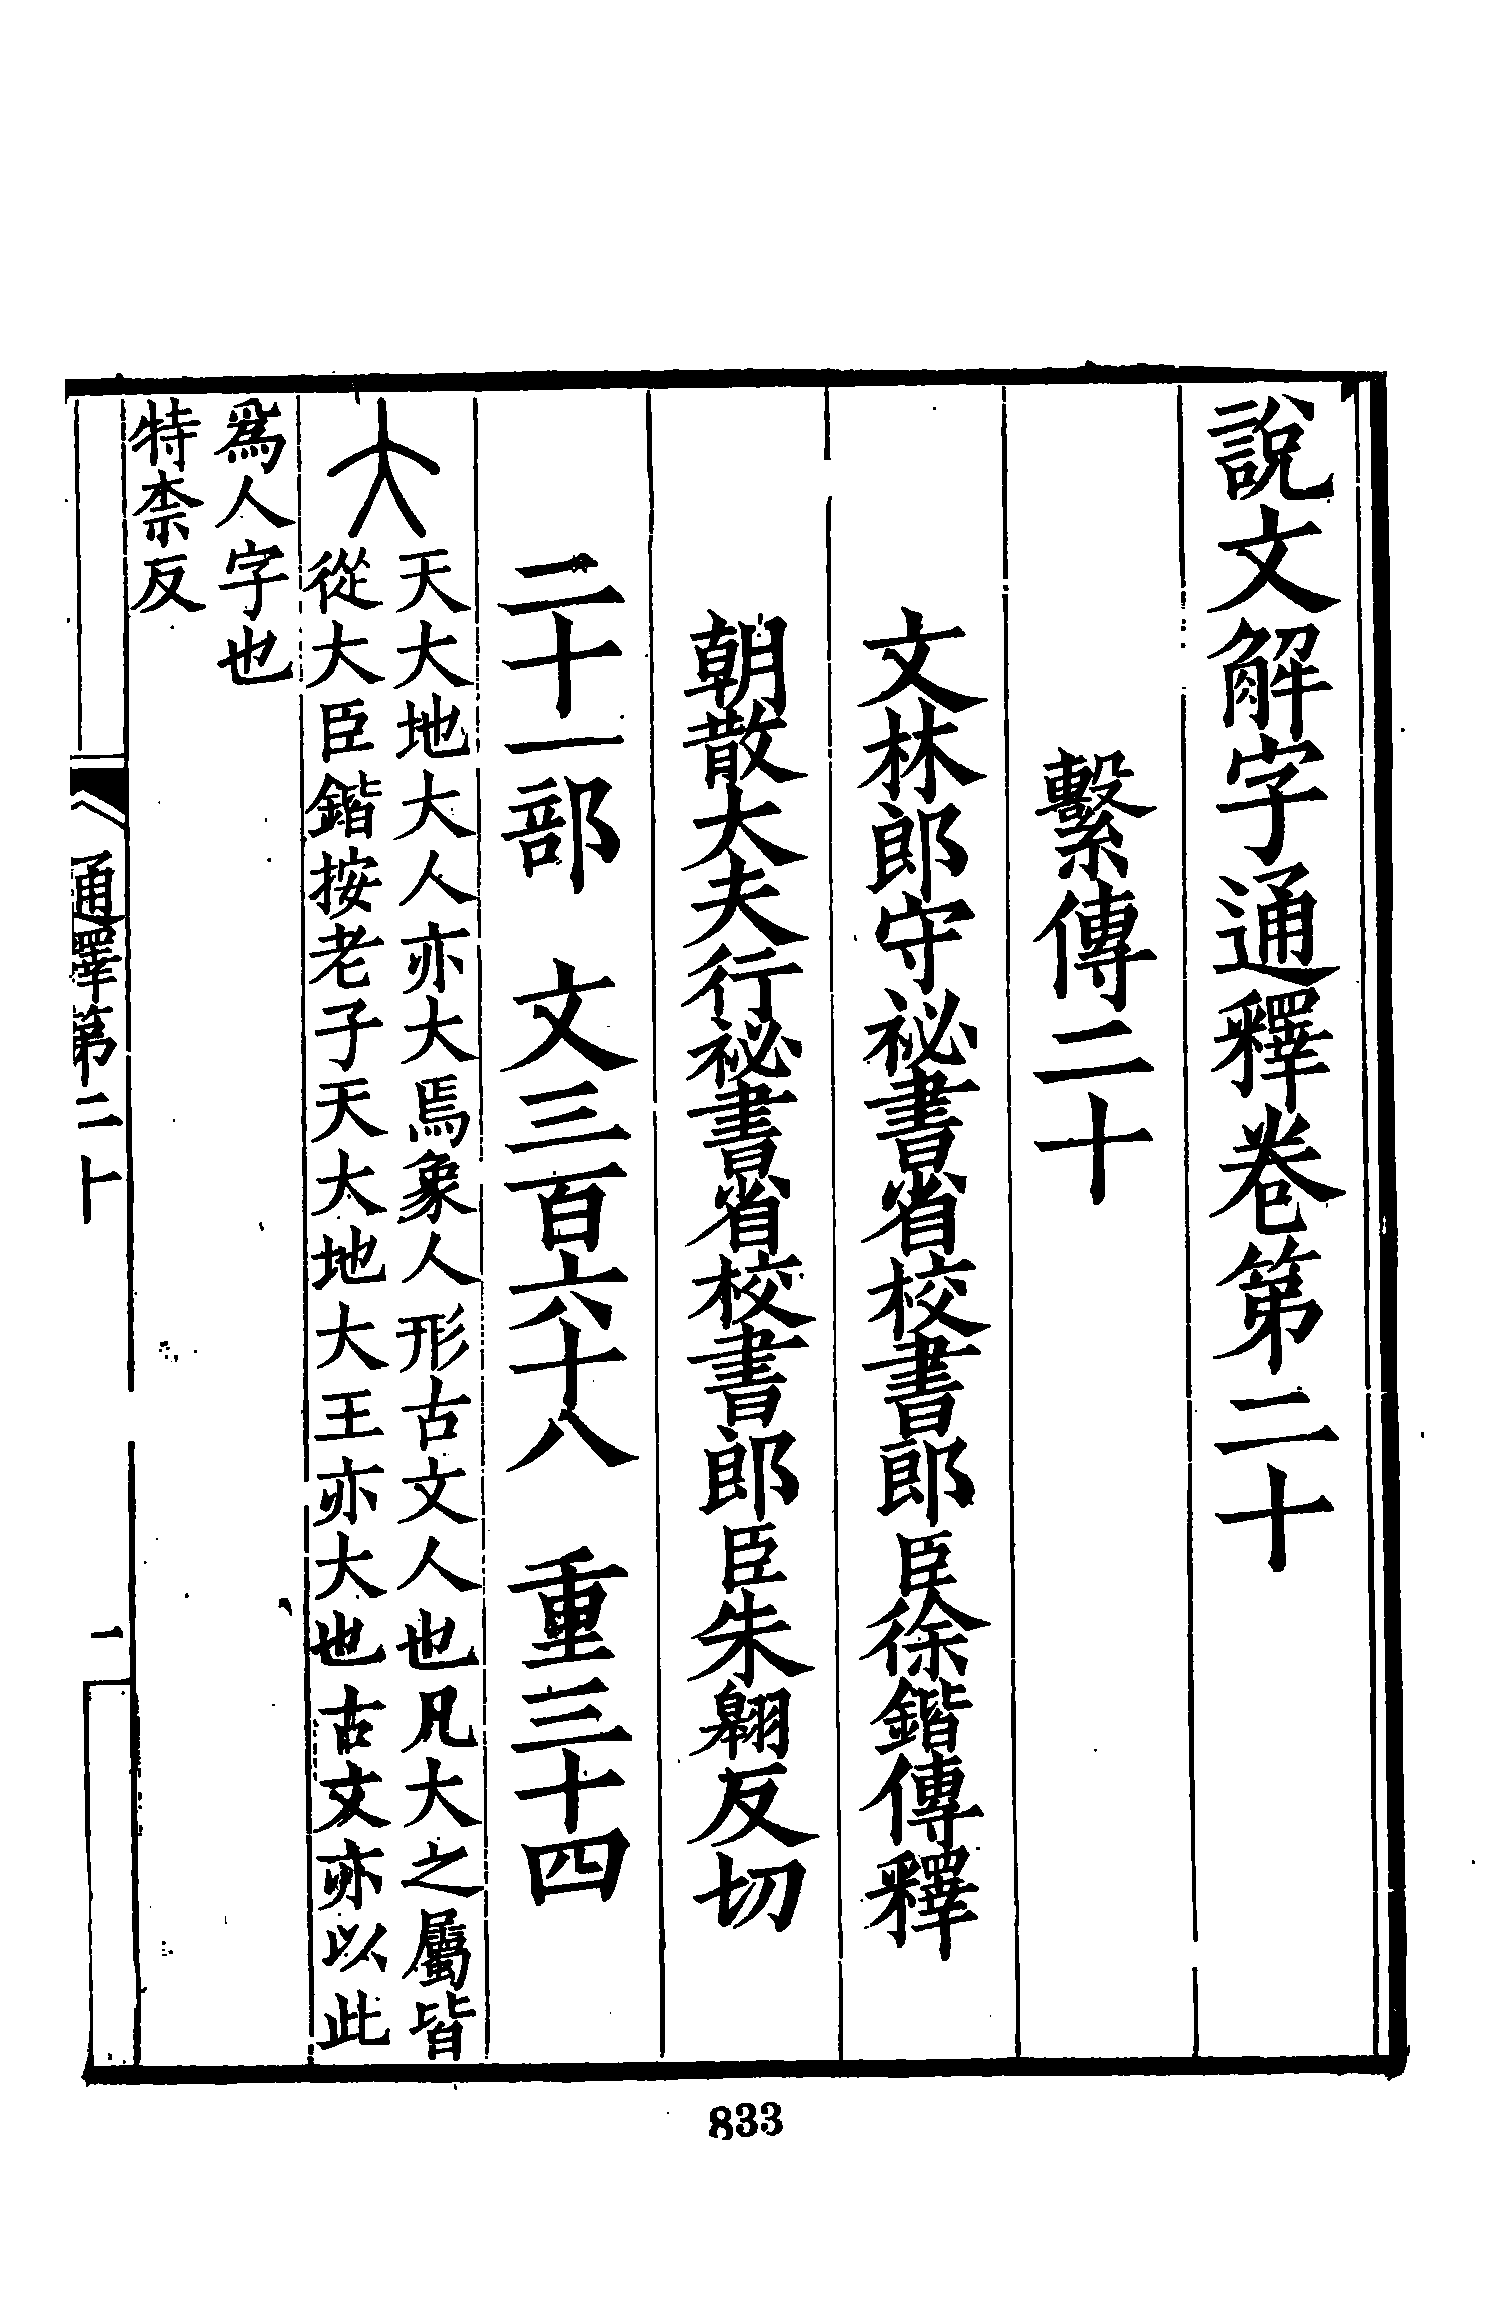 說文解字通釋卷第二十
繫傳二十
文林郎守祕書省校書郎臣徐鍇傳釋
朝散大夫行祕書省校書郎臣朱翱反切
二十一部 文三百六十八 重三十四
大
天大地大人亦大焉象人形古文人也凡大之屬皆
從大臣鍇按老子天大地大王亦大也古文亦以此
爲人字也
特柰反
通釋第二十
一
833